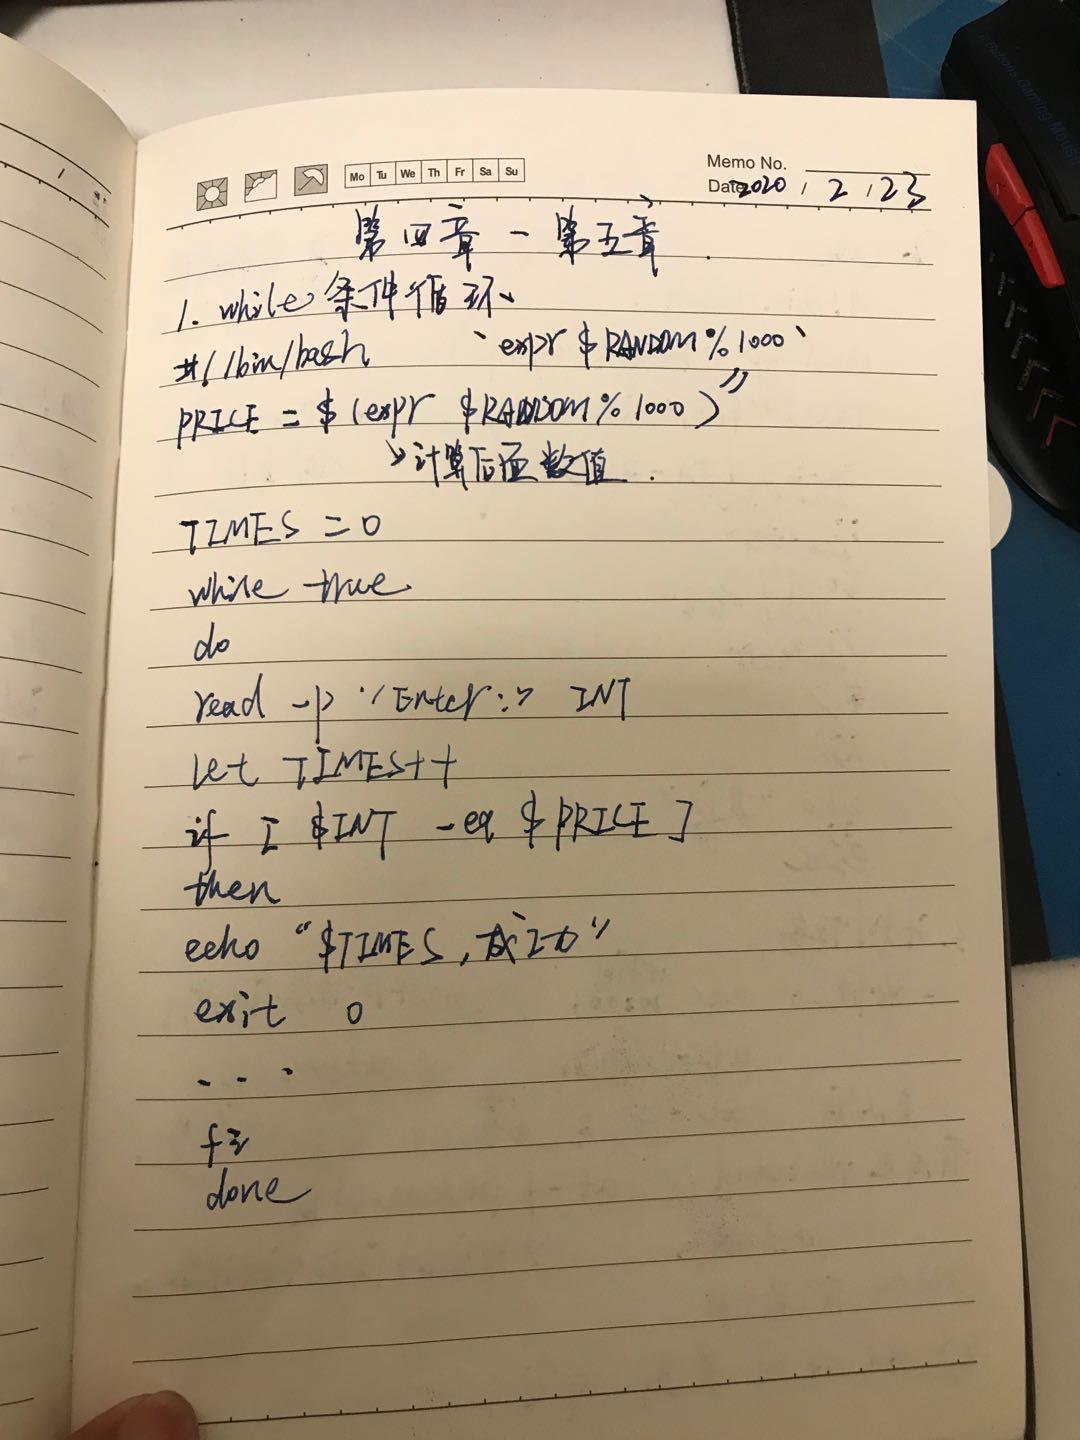 Mo Tu We Th Fr Sa Su
Memo No.
Date 2020 / 2 / 23
第四章 - 第五章
1. while 条件循环、
#! /bin/bash `expr $RANDOM % 1000`
PRICE = $(expr $RANDOM % 1000)
计算后面数值.
TIMES = 0
while true
do
read -p "Enter:" INT
let TIMES++
if [ $INT -eq $PRICE ]
then
echo "$TIMES, 成功"
exit 0
...
fi
done